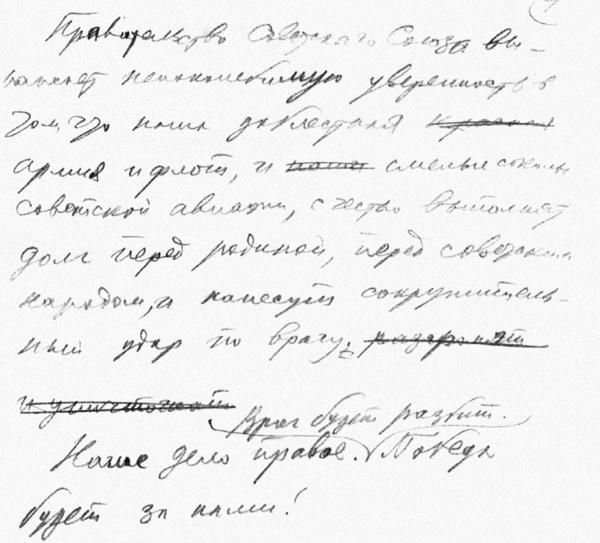 Правительство Советского Союза вы-
ражает непоколебимую уверенность в
том, что наши доблестная красная
армия и флот, и наши смелые соколы
советской авиации, с честью выполнят
долг перед родиной, перед советским
народом, и нанесут сокрушитель-
ный удар по врагу. разгромят
и уничтожат
Враг будет разбит.
Наше дело правое. Победа
будет за нами!